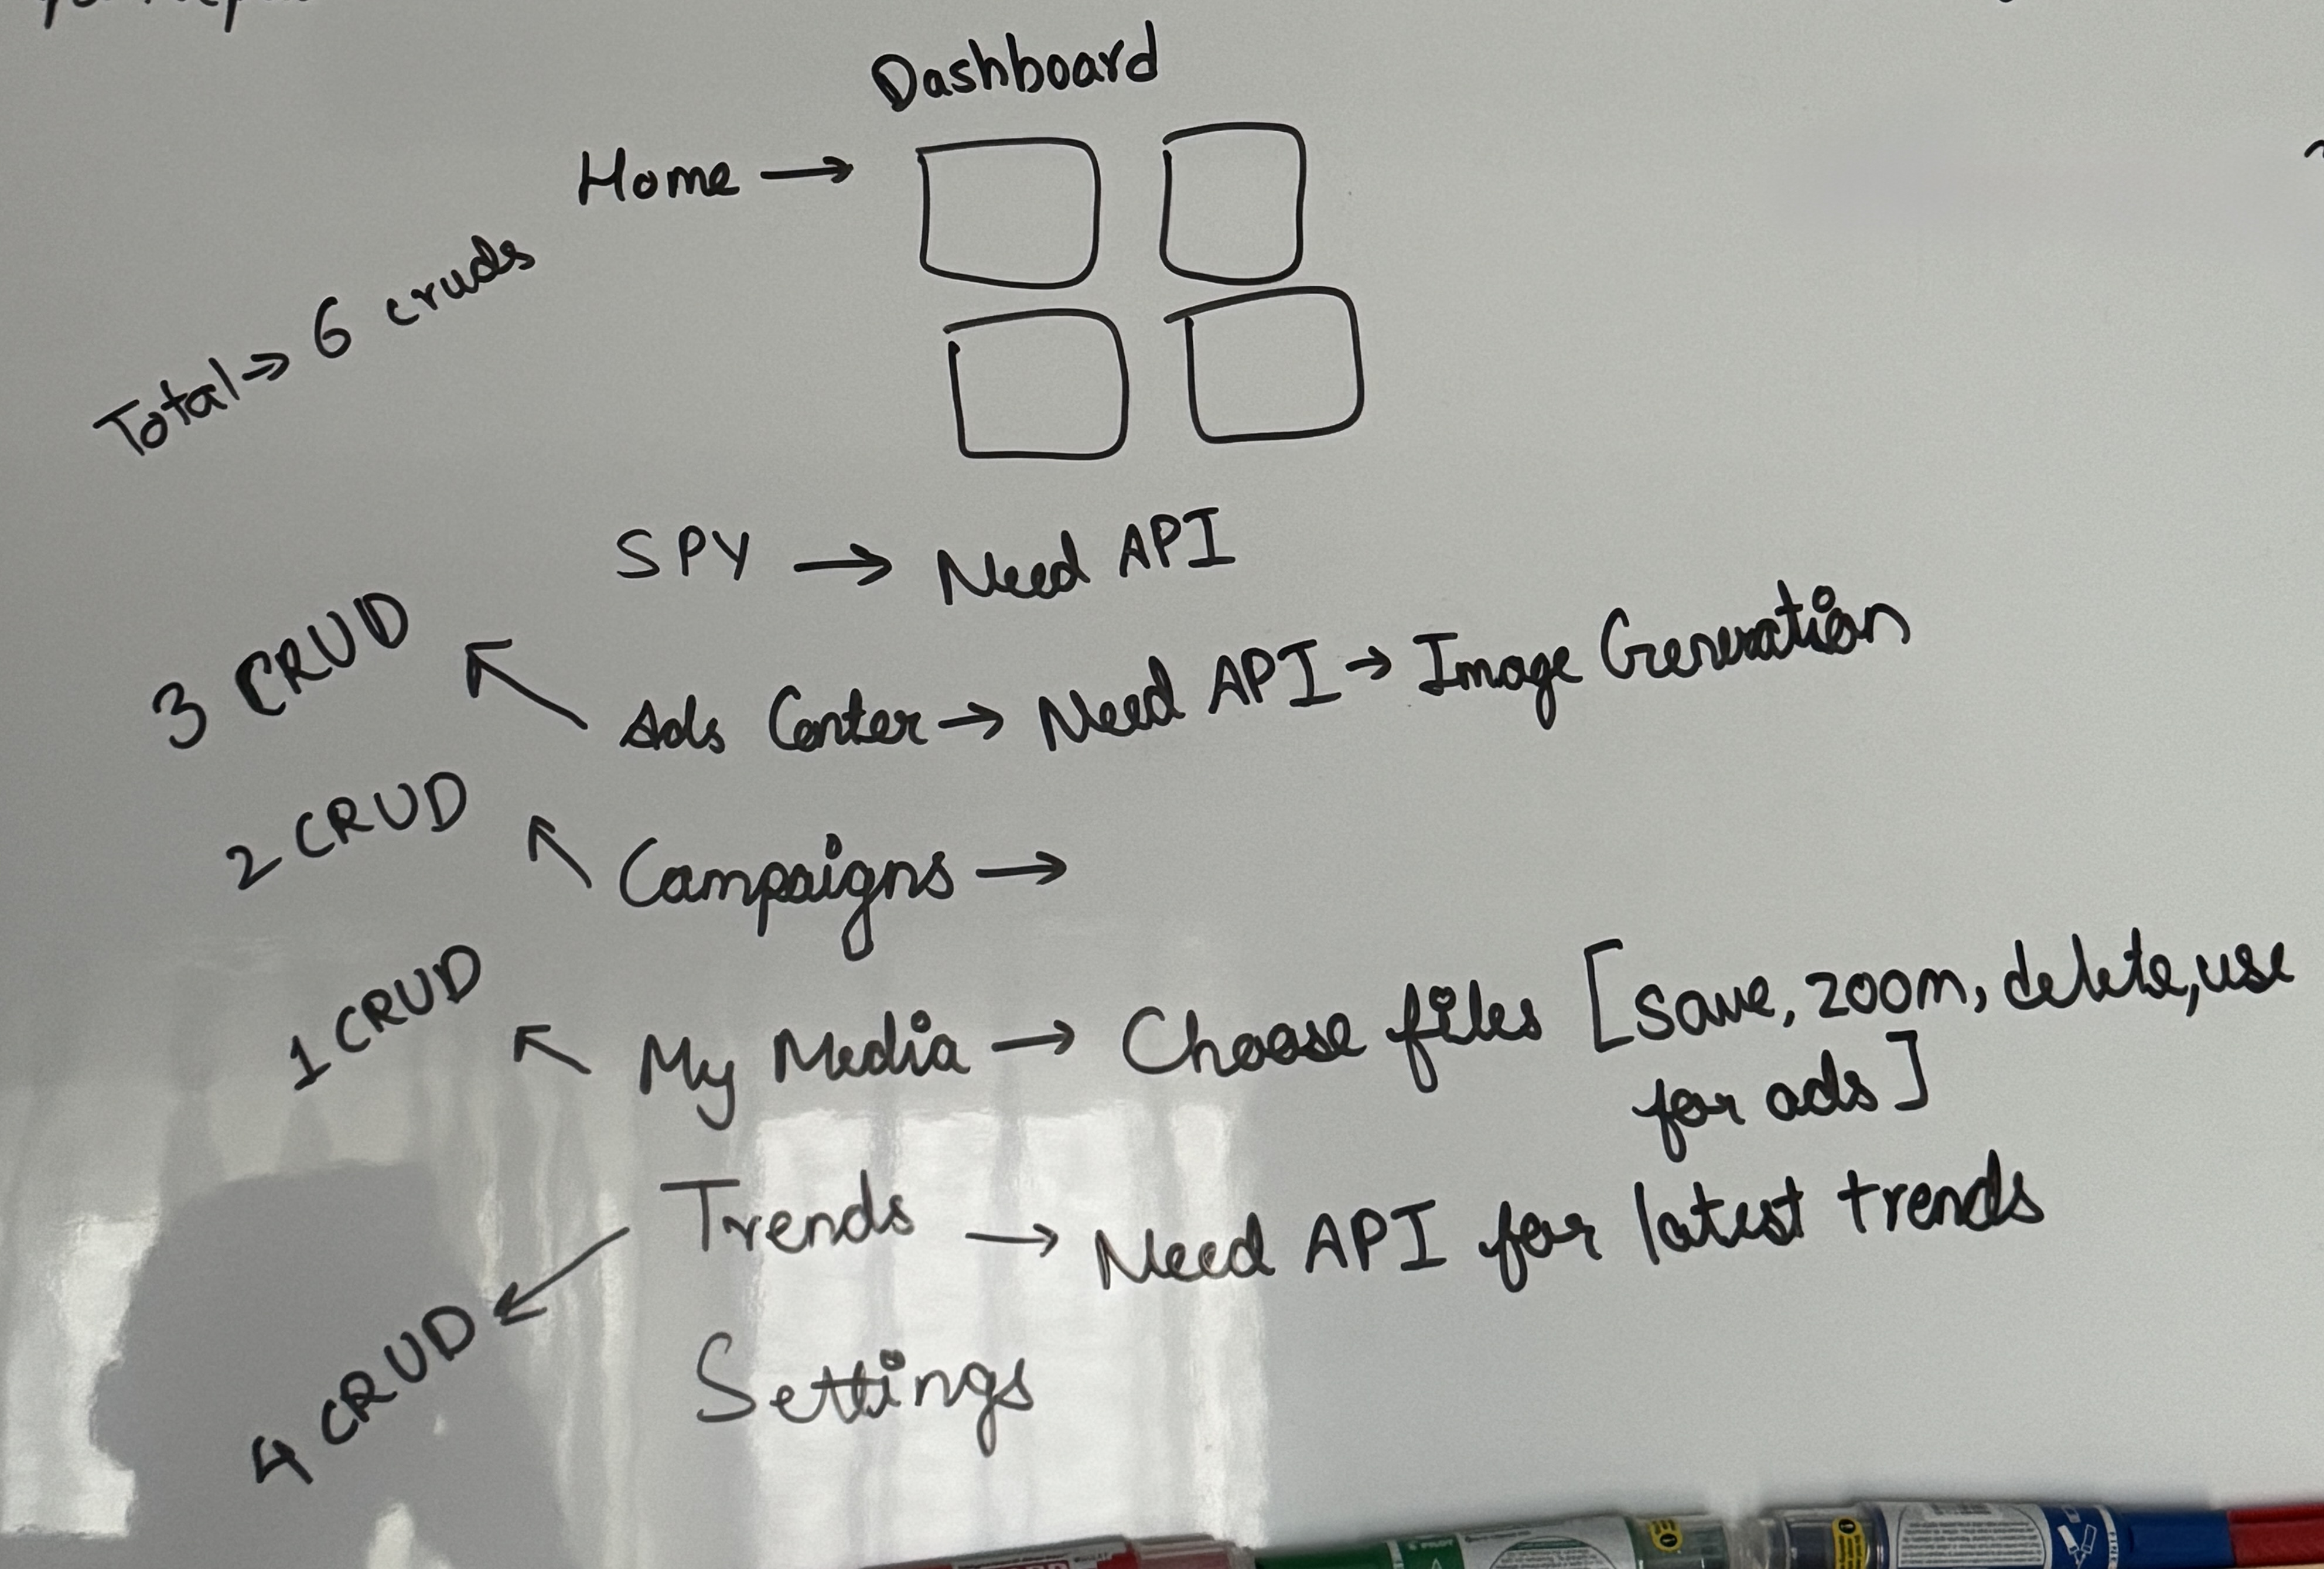 Dashboard
Home →
Total → 6 cruds
SPY → Need API
3 CRUD
Ads Center → Need API → Image Generation
2 CRUD
Campaigns →
1 CRUD
My Media → Choose files [save, zoom, delete, use
for ads]
Trends → Need API for latest trends
4 CRUD
Settings